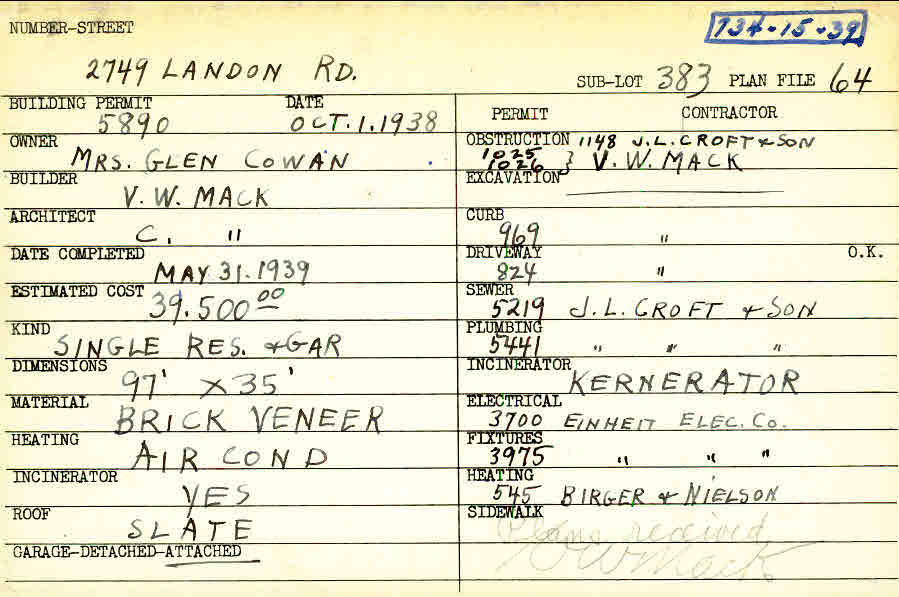 NUMBER-STREET
734-15-39
2749 LANDON RD.
SUB-LOT 383 PLAN FILE 64
BUILDING PERMIT DATE
5890 OCT. 1. 1938
OWNER
MRS. GLEN COWAN
BUILDER
V. W. MACK
ARCHITECT
C. "
DATE COMPLETED
MAY 31. 1939
ESTIMATED COST 39.500 00
KIND
SINGLE RES. & GAR
DIMENSIONS
97' X 35'
MATERIAL
BRICK VENEER
HEATING
AIR COND
INCINERATOR
YES
ROOF
SLATE
GARAGE-DETACHED-ATTACHED
PERMIT CONTRACTOR
OBSTRUCTION 1148 J. L. CROFT & SON
1025
1026 } V. W. MACK
EXCAVATION
CURB
969 "
DRIVEWAY O.K.
824 "
SEWER
5219 J. L. CROFT & SON
PLUMBING
5441 " " "
INCINERATOR
KERNERATOR
ELECTRICAL
3700 EINHEIT ELEC. Co.
FIXTURES
3975 " " "
HEATING
545 BIRGER & NIELSON
SIDEWALK
Plans received
V W Mack